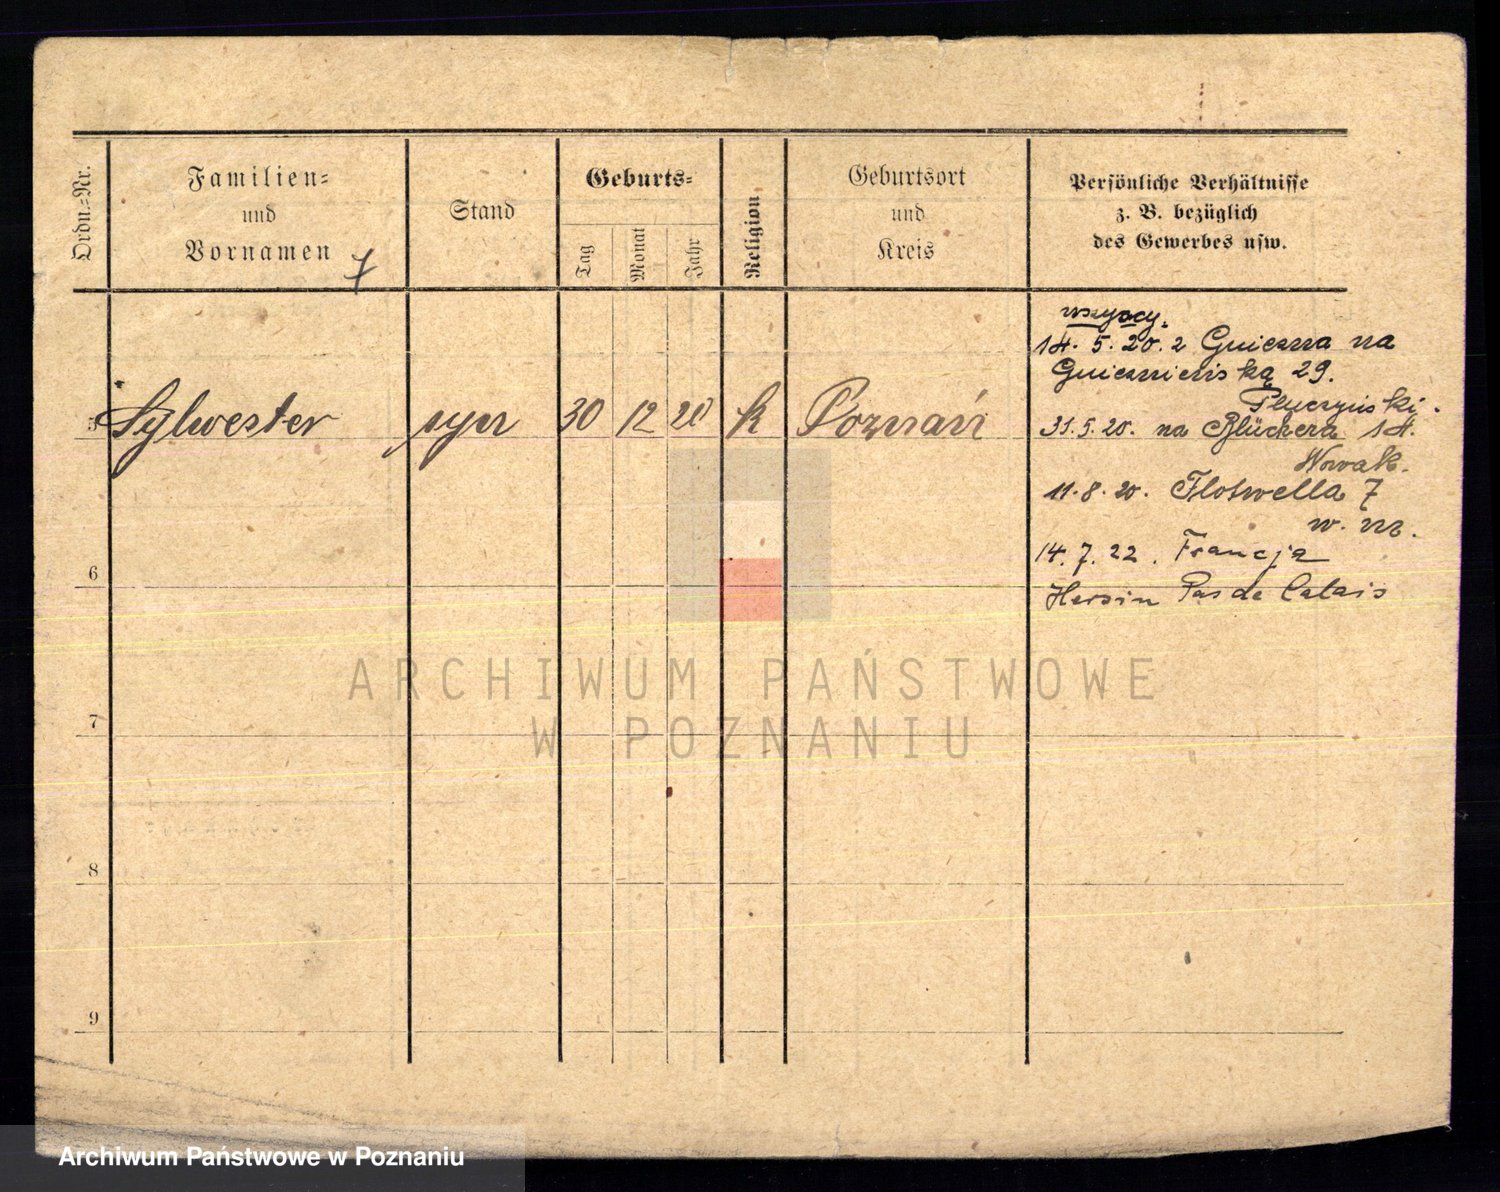 Ordn.=Nr.
Familien=
und
Vornamen
7
Stand
Geburts=
Tag
Monat
Jahr
Religion
Geburtsort
und
Kreis
Persönliche Verhältnisse
z. B. bezüglich
des Gewerbes usw.
wszyscy.
14. 5. 20. z Gniezna na
Gnieznieńską 29.
5 Sylwester syn 30 12 20 k Poznań
31.5.20. na Blüchera 14.
Nowak.
11.8.20. Flotwella 7
w. m.
14.7.22. Francja
Hersin Pas de Calais
6
7
8
9
ARCHIWUM PAŃSTWOWE
W POZNANIU
Archiwum Państwowe w Poznaniu